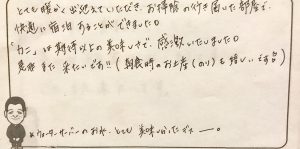 とても暖かく出迎えていただき、お掃除の行き届いた部屋で
快適に宿泊することができました。
「カニ」は期待以上の美味しさで、感激いたしました。
是非また来たいです!!(朝食時のお土産(のり)も嬉しいです)
*ウォーターサーバーのお水、とても美味しかったです ー。